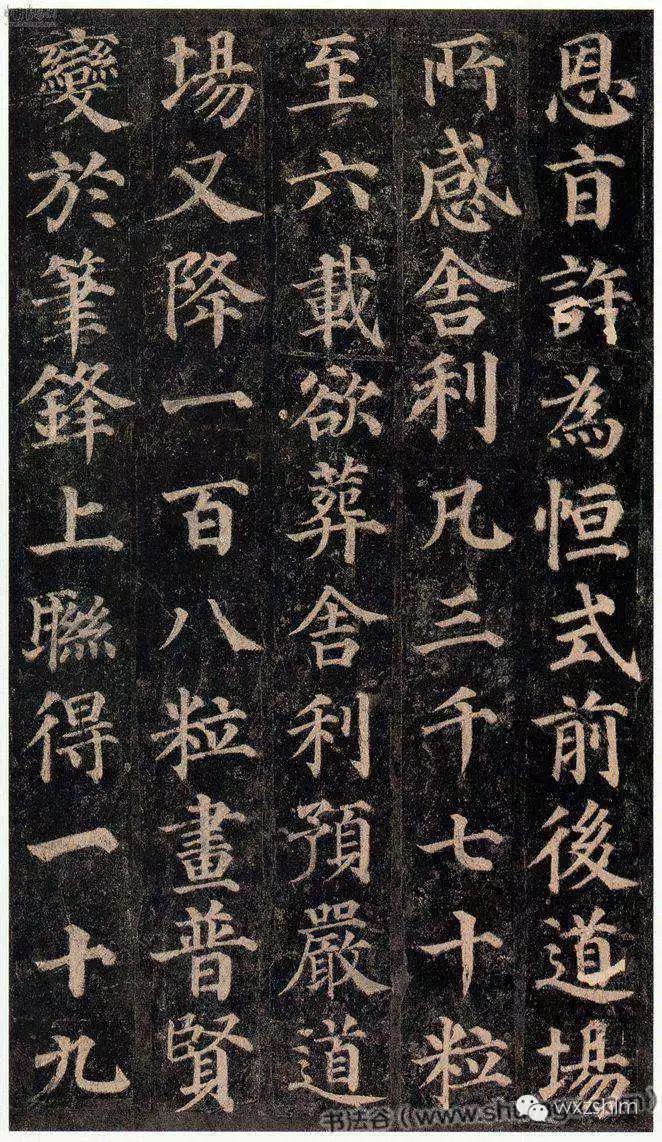 恩㫖許為恒式前後道場
所感舍利凡三千七十粒
至六載欲葬舍利預嚴道
場又降一百八粒畫普賢
變於筆鋒上聯得一十九
书法谷
wxzshlm